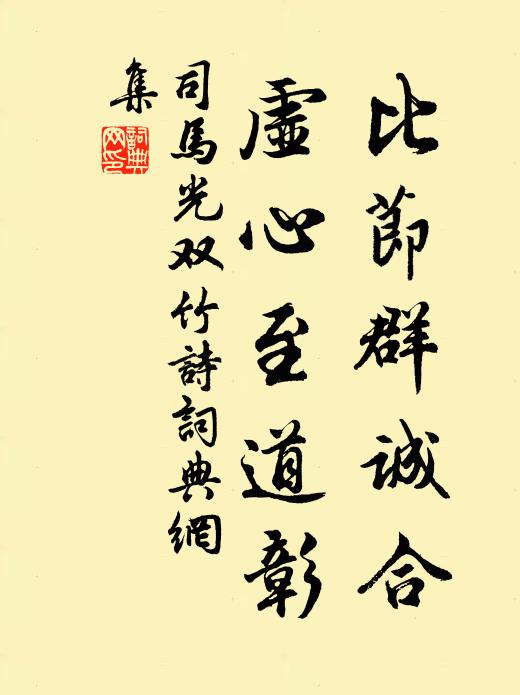 比節群誠合
虛心至道彰
司馬光双竹詩詞典網
集
詞典網印